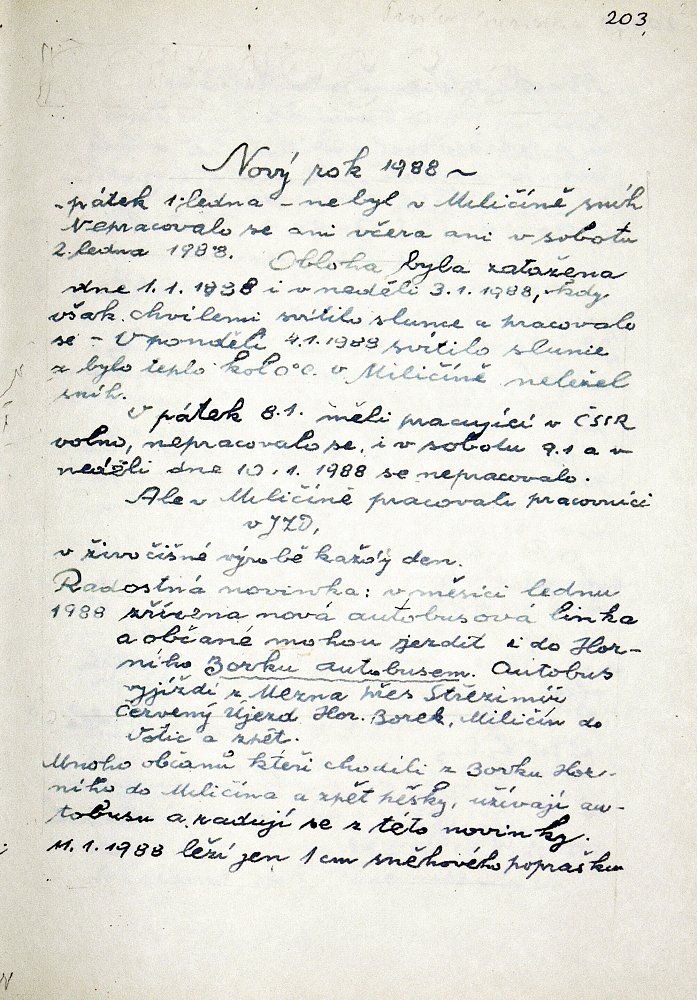 203
Nový rok 1988 ~
- pátek 1. ledna - nebyl v Miličíně sníh
Nepracovalo se ani včera ani v sobotu
2. ledna 1988. Obloha byla zatažena
dne 1.1. 1988 i v neděli 3.1. 1988, kdy
však chvílemi svítilo slunce a pracovalo
se - V pondělí 4.1.1988 svítilo slunce
a bylo teplo kol 0°C. v Miličíně neležel
sníh.
V pátek 8.1. měli pracující v ČSSR
volno, nepracovalo se, i v sobotu 9.1 a v
neděli dne 10.1. 1988 se nepracovalo.
Ale v Miličíně pracovali pracovníci
v JZD,
v živočišné výrobě každý den.
Radostná novinka: v měsíci lednu
1988 zřízena nová autobusová linka
a občané mohou jezdit i do Hor-
ního Borku autobusem. Autobus
vyjíždí z Mezna přes Střezimíř
Červený Újezd Hor. Borek, Miličín do
Votic a zpět.
Mnoho občanů kteří chodili z Borku Hor-
ního do Miličína a zpět pěšky, užívají au-
tobusu a radují se z této novinky.
11.1.1988 leží jen 1 cm sněhového poprašku